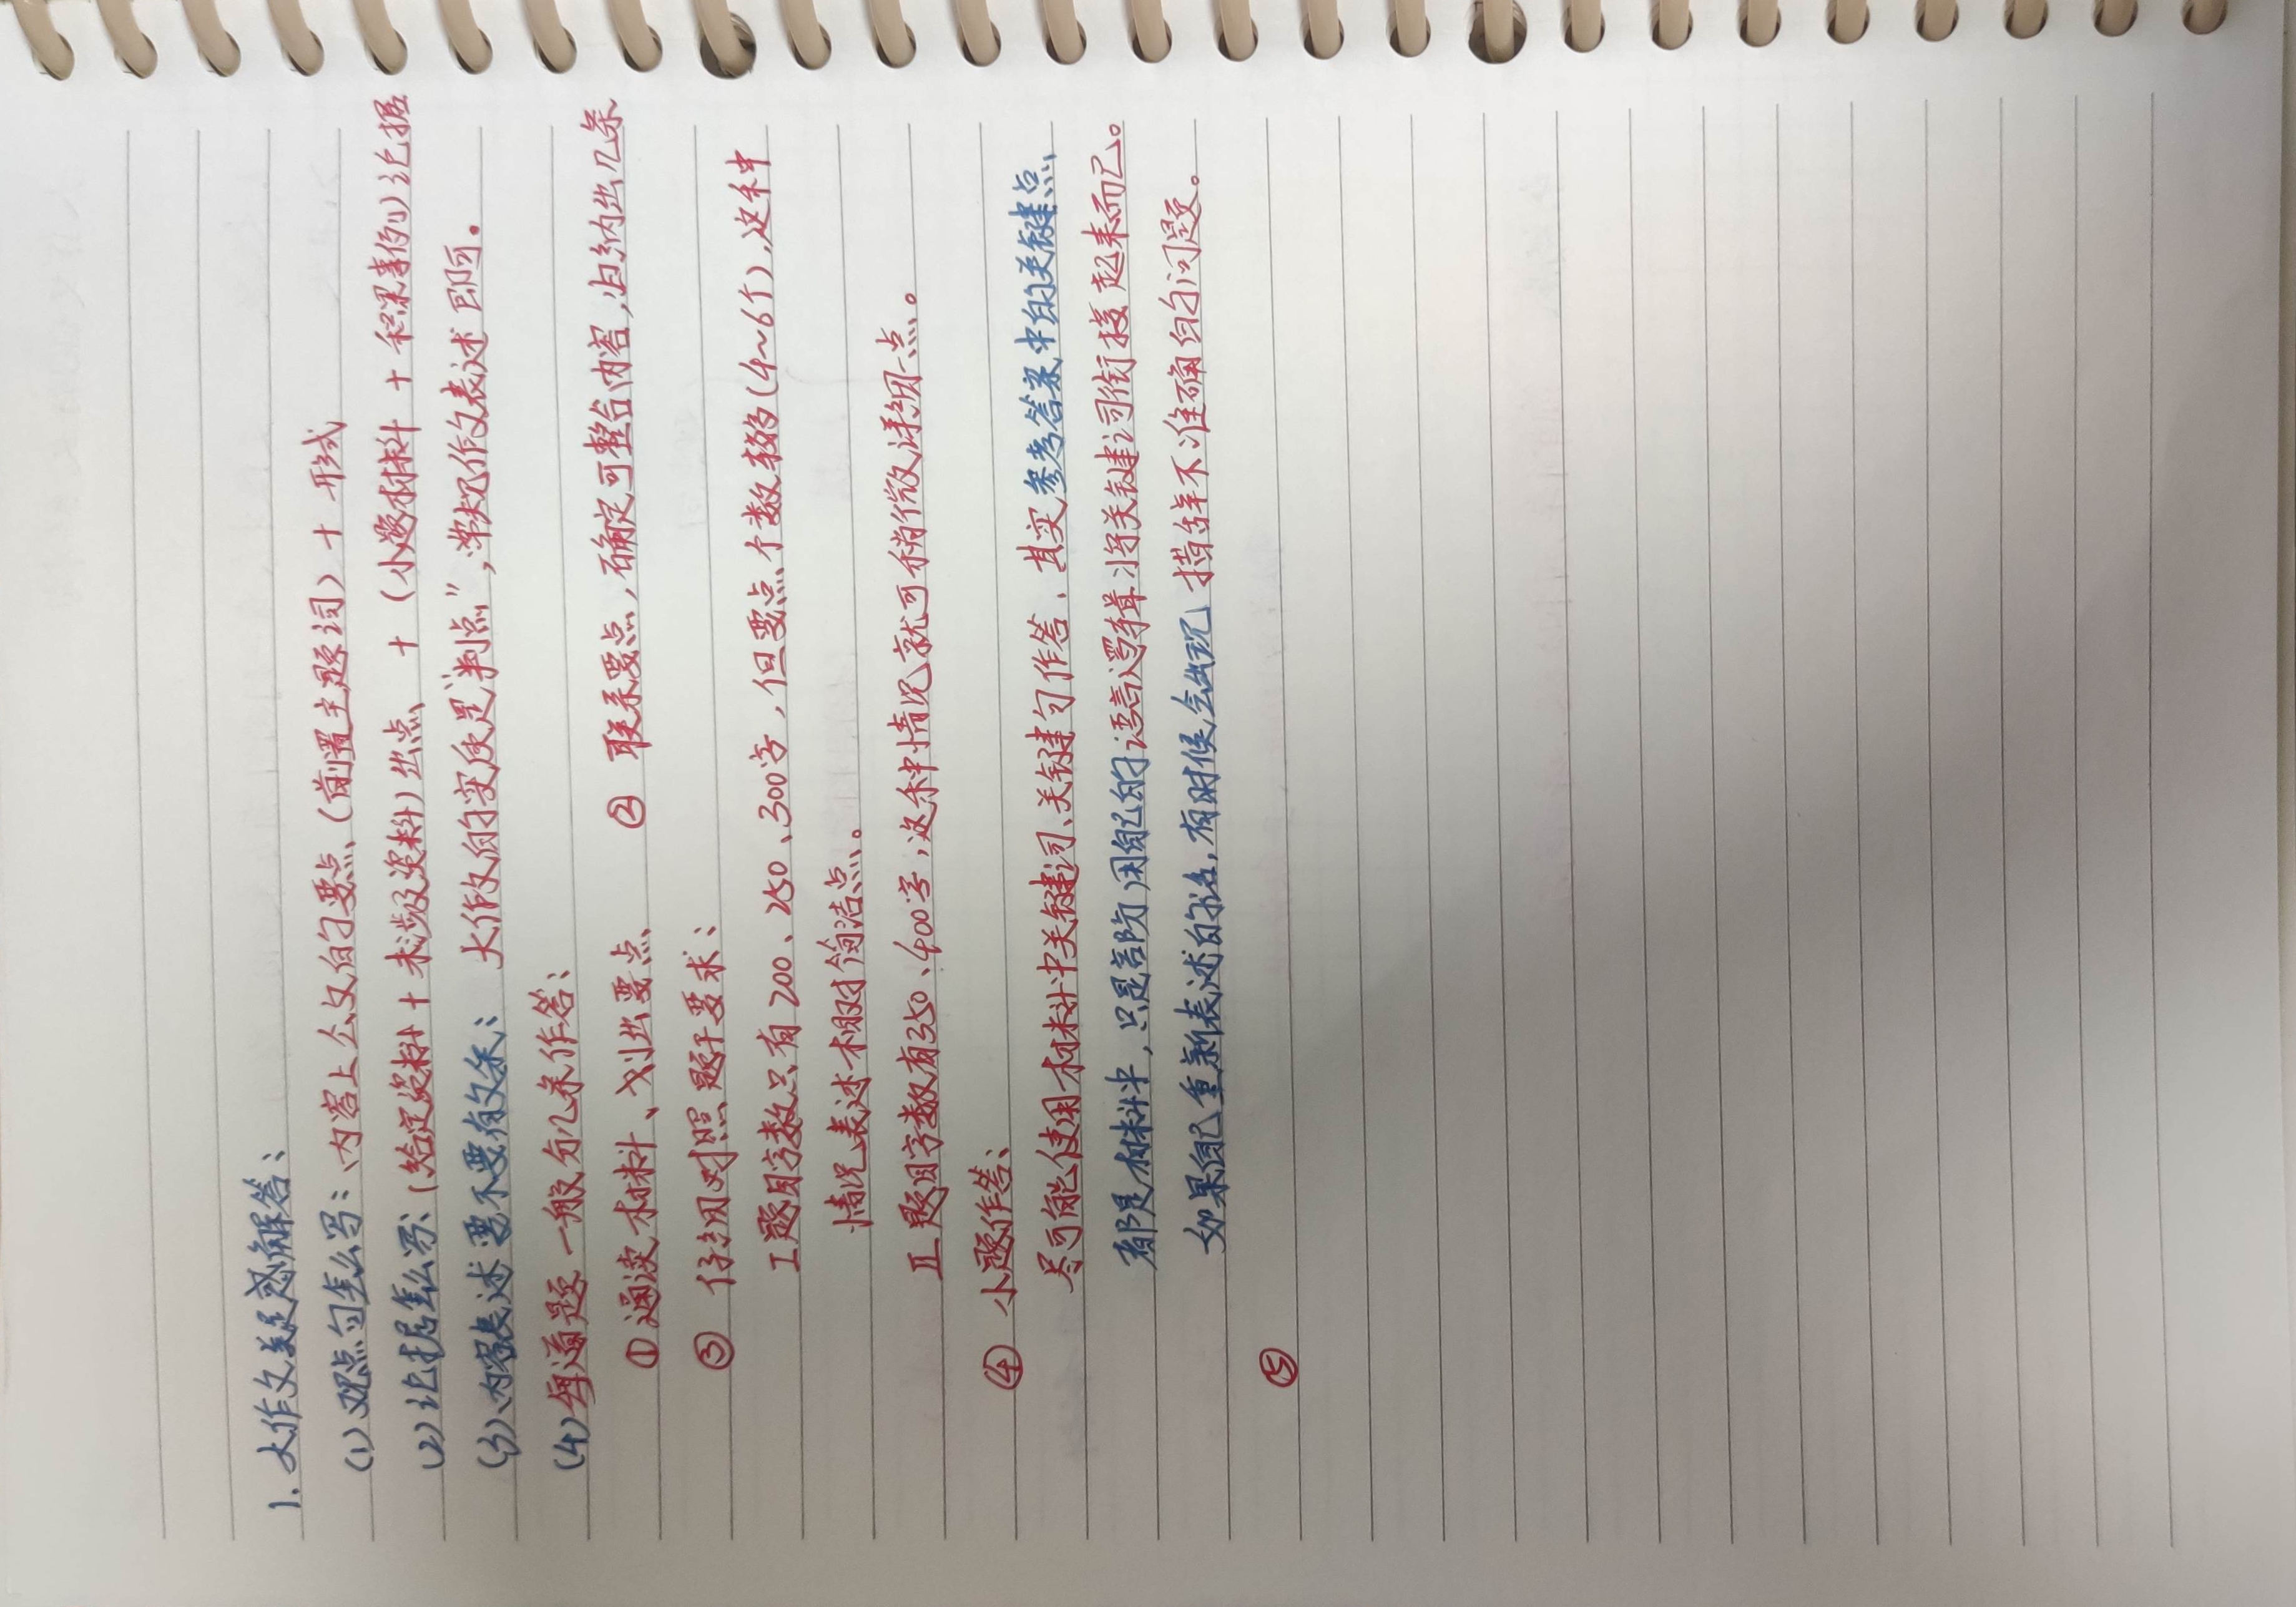 1. 大作文类疑惑解答：
(1) 观点句怎么写：内容上公文的要点（前置主题词）+ 形式
(2) 论据怎么写：（给定资料 + 未涉及资料）出点 + （小题材料 + 积累事例）论据
(3) 内容表述要不要有文采：大作文的实质是“判点”，常规作文表述即可。
(4) 每道题一般分几条作答：
① 通读材料、划出要点 ② 联系要点，确定可整合内容，归纳出几条
③ 仔细对照题干要求：
I 题目字数只有200、250、300字，但要点个数较多（4~6个），这种
情况表述相对简洁点。
II 题目字数有350、400字，这种情况就可稍微详细一点。
④ 小题作答：
尽可能使用材料中关键词、关键句作答，其实参考答案中的关键点
都是材料中，只是部分用自己的语言逻辑将关键词衔接起来而已。
如果自己重新表述的话，有时候会出现措辞不准确的问题。
⑤